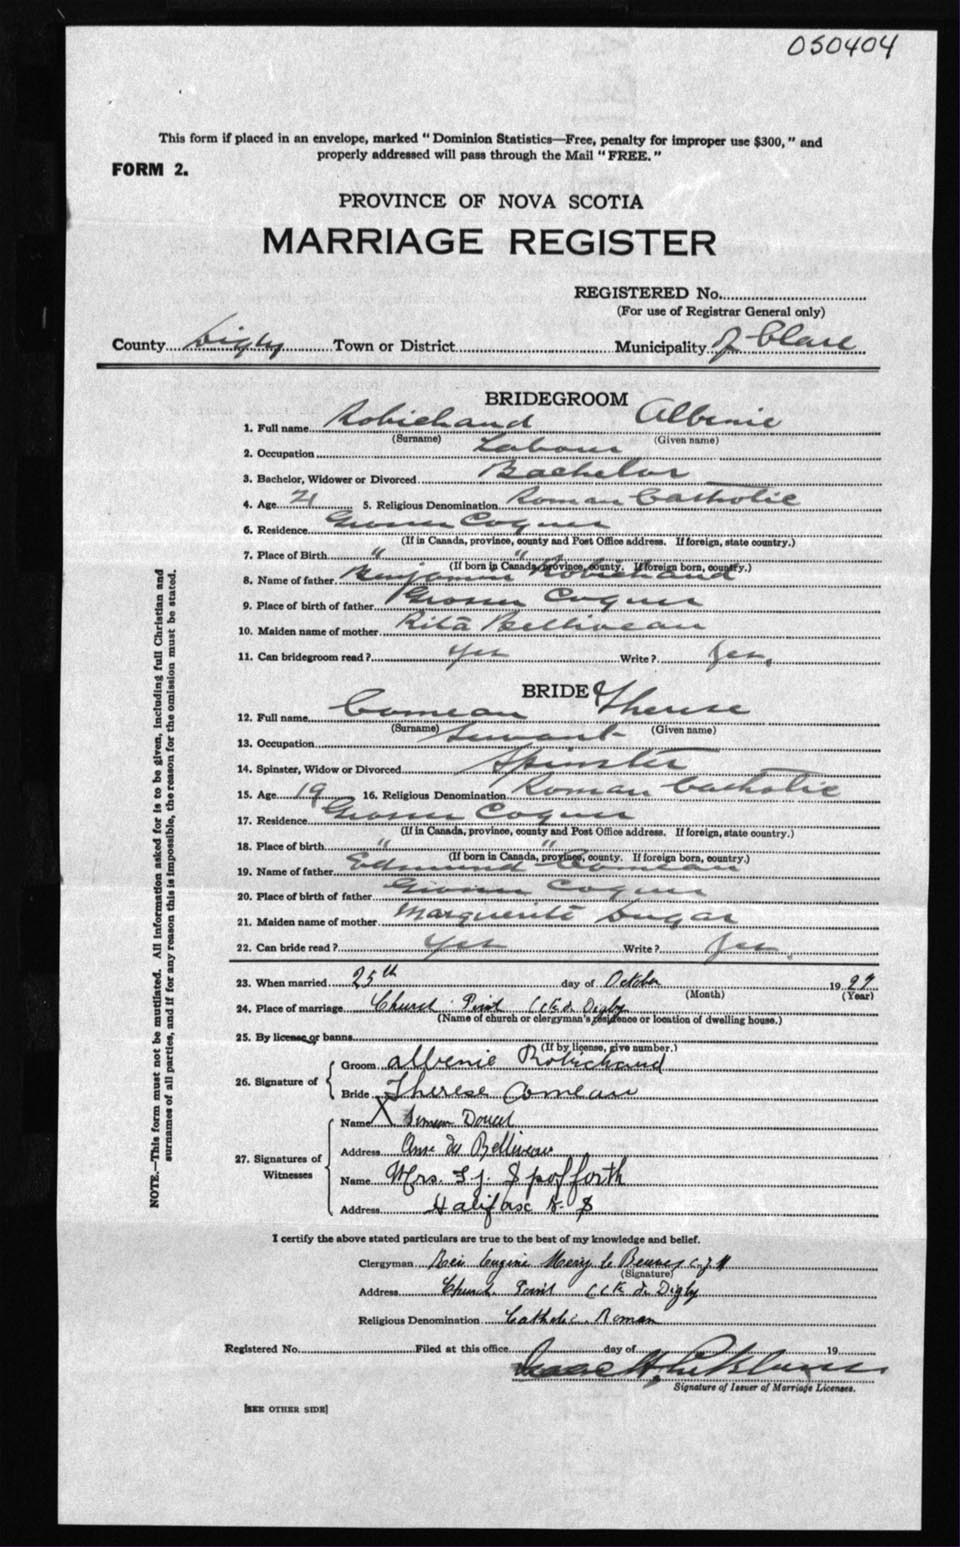 050404
This form if placed in an envelope, marked "Dominion Statistics—Free, penalty for improper use $300," and
properly addressed will pass through the Mail "FREE."
FORM 2.
PROVINCE OF NOVA SCOTIA
MARRIAGE REGISTER
REGISTERED No.
(For use of Registrar General only)
County Digby Town or District Municipality of Clare
BRIDEGROOM
1. Full name Robichaud Albenie
(Surname) (Given name)
2. Occupation Labour
3. Bachelor, Widower or Divorced Bachelor
4. Age 21 5. Religious Denomination Roman Catholic
6. Residence Grosses Coques
(If in Canada, province, county and Post Office address. If foreign, state country.)
7. Place of Birth " "
(If born in Canada, province, county. If foreign born, country.)
8. Name of father Benjamin Robichaud
9. Place of birth of father Grosses Coques
10. Maiden name of mother Rita Belliveau
11. Can bridegroom read? Yes Write? Yes.
BRIDE
12. Full name Comeau Therese
(Surname) (Given name)
13. Occupation Servant
14. Spinster, Widow or Divorced Spinster
15. Age 19 16. Religious Denomination Roman Catholic
17. Residence Grosses Coques
(If in Canada, province, county and Post Office address. If foreign, state country.)
18. Place of birth " "
(If born in Canada, province, county. If foreign born, country.)
19. Name of father Edmund Comeau
20. Place of birth of father Grosses Coques
21. Maiden name of mother Marguerite Dugas
22. Can bride read? Yes Write? Yes.
23. When married 25th day of October 1927
(Month) (Year)
24. Place of marriage Church Point Digby
(Name of church or clergyman's residence or location of dwelling house.)
25. By license or banns
(If by license, give number.)
26. Signature of
Groom Albenie Robichaud
Bride Therese Comeau
27. Signatures of Witnesses
Name X Doucet
Address Belliveau
Name Mrs. Spofforth
Address Halifax N. S
I certify the above stated particulars are true to the best of my knowledge and belief.
Clergyman
(Signature)
Address Church Point Digby
Religious Denomination Catholic Roman
Registered No. Filed at this office day of 19
Isaac H.
Signature of Issuer of Marriage Licenses.
[SEE OTHER SIDE]
NOTE.—This form must not be mutilated. All information asked for is to be given, including full Christian and
surnames of all parties, and if for any reason this is impossible, the reason for the omission must be stated.